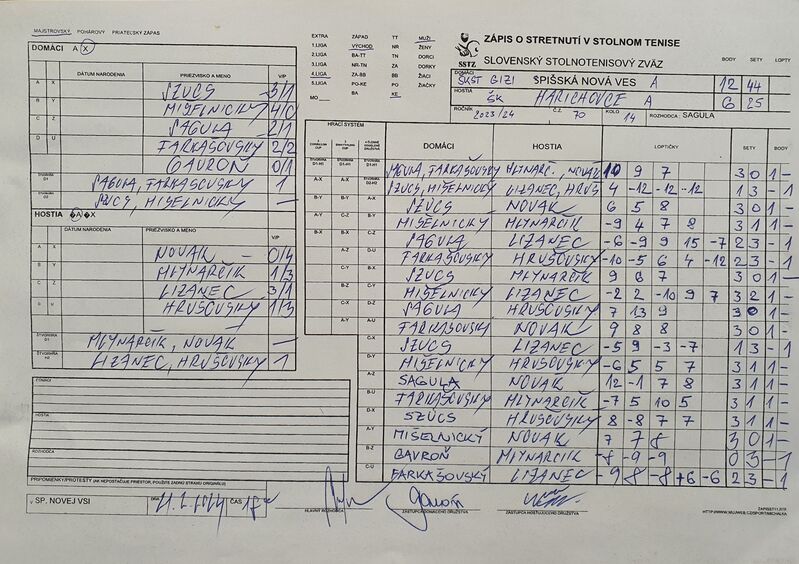 MAJSTROVSKÝ POHÁROVÝ PRIATEĽSKÝ ZÁPAS
DOMÁCI A X
DÁTUM NARODENIA PRIEZVISKO A MENO V/P
A X SZÜCS 3/1
B Y MIŠELNICKÝ 4/0
C Z SAGULA 2/1
D U FARKAŠOVSKÝ 2/2
GAVROŇ 0/1
ŠTVORHRA D1 SAGULA, FARKAŠOVSKÝ 1
ŠTVORHRA D2 SZÜCS, MIŠELNICKÝ –
HOSTIA A X
DÁTUM NARODENIA PRIEZVISKO A MENO V/P
A X NOVÁK 0/4
B Y MLYNARČÍK 1/3
C Z LIZANEC 3/1
D U HRUŠOVSKÝ 1/3
ŠTVORHRA D1 MLYNARČÍK, NOVÁK –
ŠTVORHRA H2 LIZANEC, HRUŠOVSKÝ 1
DOMÁCI
HOSTIA
ROZHODCA
PRIPOMIENKY/PROTESTY (AK NEPOSTAČUJE PRIESTOR, POUŽITE ZADNÚ STRANU ORIGINÁLU)
V SP. NOVEJ VSI DŇA ČAS
EXTRA ZÁPAD TT MUŽI
1.LIGA VÝCHOD NR ŽENY
2.LIGA BA-TT TN DORCI
3.LIGA NR-TN ZA DORKY
4.LIGA ZA-BB BB ŽIACI
5.LIGA PO-KE PO ŽIAČKY
MO BA KE
SSTZ
ZÁPIS O STRETNUTÍ V STOLNOM TENISE
SLOVENSKÝ STOLNOTENISOVÝ ZVÄZ BODY SETY LOPTY
DOMÁCI ŠKST GIZI SPIŠSKÁ NOVÁ VES A 12 44
HOSTIA ŠK HARICHOVCE A 6 25
ROČNÍK 2023/24 Č.Z. 70 KOLO 14 ROZHODCA SAGULA
HRACÍ SYSTÉM DOMÁCI HOSTIA LOPTIČKY SETY BODY
SAGULA, FARKAŠOVSKÝ MLYNARČ., NOVÁK 10 9 7 3 0 1 –
SZÜCS, MIŠELNICKÝ LIZANEC, HRUŠ 4 -12 -12 -12 1 3 – 1
SZÜCS NOVÁK 6 5 8 3 0 1 –
MIŠELNICKÝ MLYNARČÍK -9 4 7 8 3 1 1 –
SAGULA LIZANEC -6 -9 9 15 -7 2 3 – 1
FARKAŠOVSKÝ HRUŠOVSKÝ -10 -5 6 4 -12 2 3 – 1
SZÜCS MLYNARČÍK 9 6 7 3 0 1 –
MIŠELNICKÝ LIZANEC -2 2 -10 9 7 3 2 1 –
SAGULA HRUŠOVSKÝ 7 13 9 3 0 1 –
FARKAŠOVSKÝ NOVÁK 9 8 8 3 0 1 –
SZÜCS LIZANEC -5 9 -3 -7 1 3 – 1
MIŠELNICKÝ HRUŠOVSKÝ -6 5 5 7 3 1 1 –
SAGULA NOVÁK 12 -1 7 8 3 1 1 –
FARKAŠOVSKÝ MLYNARČÍK -7 5 10 5 3 1 1 –
SZÜCS HRUŠOVSKÝ 8 -8 7 7 3 1 1 –
MIŠELNICKÝ NOVÁK 7 7 8 3 0 1 –
GAVROŇ MLYNARČÍK -8 -9 -9 0 3 – 1
FARKAŠOVSKÝ LIZANEC -9 8 -8 +6 -6 2 3 – 1
HLAVNÝ ROZHODCA ZÁSTUPCA DOMÁCEHO DRUŽSTVA ZÁSTUPCA HOSŤUJÚCEHO DRUŽSTVA